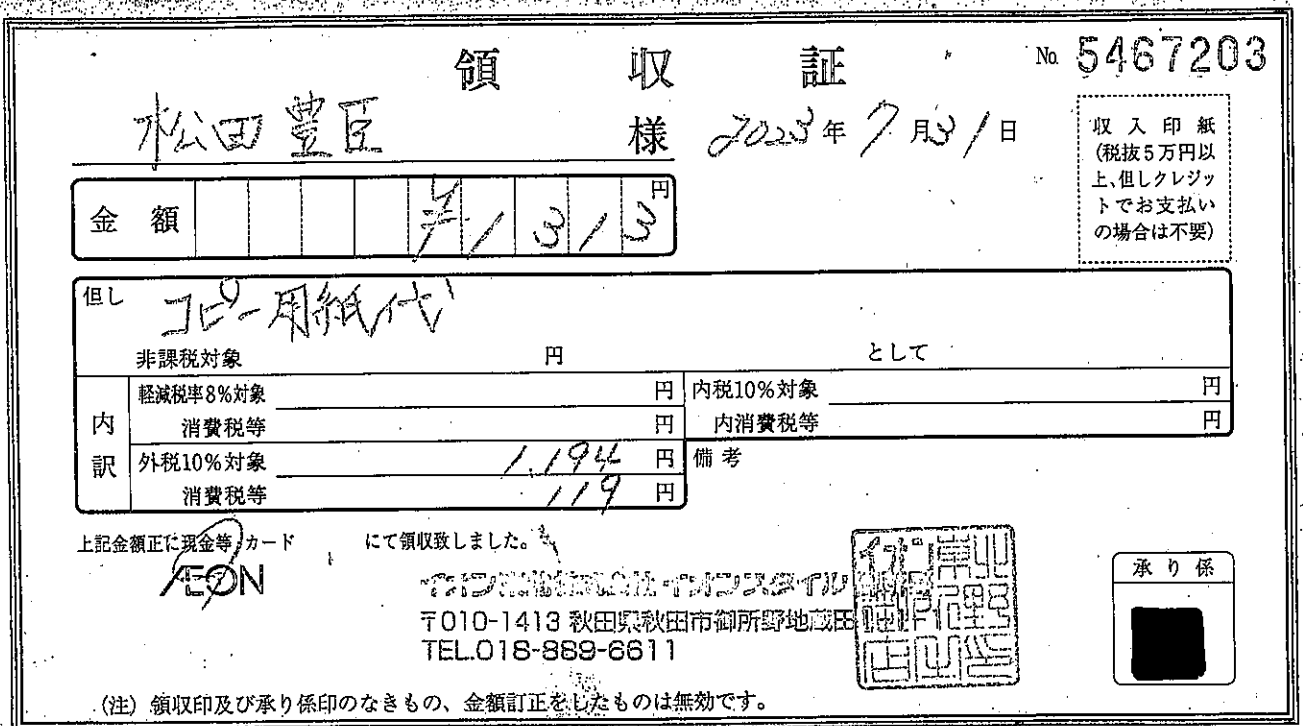 領収証 № 5467203
松田豊臣 様 2023年7月31日
収入印紙
(税抜5万円以
上、但しクレジッ
トでお支払い
の場合は不要)
金額 ¥1313円
但し コピー用紙代
非課税対象 円 として
内訳
軽減税率8%対象 円 内税10%対象 円
消費税等 円 内消費税等 円
外税10%対象 1,194円 備考
消費税等 119円
上記金額正に現金等/カード にて領収致しました。
ÆON
イオン東北株式会社 イオンスタイル
〒010-1413 秋田県秋田市御所野地蔵田
TEL.018-889-6611
承り係
(注) 領収印及び承り係印のなきもの、金額訂正をしたものは無効です。